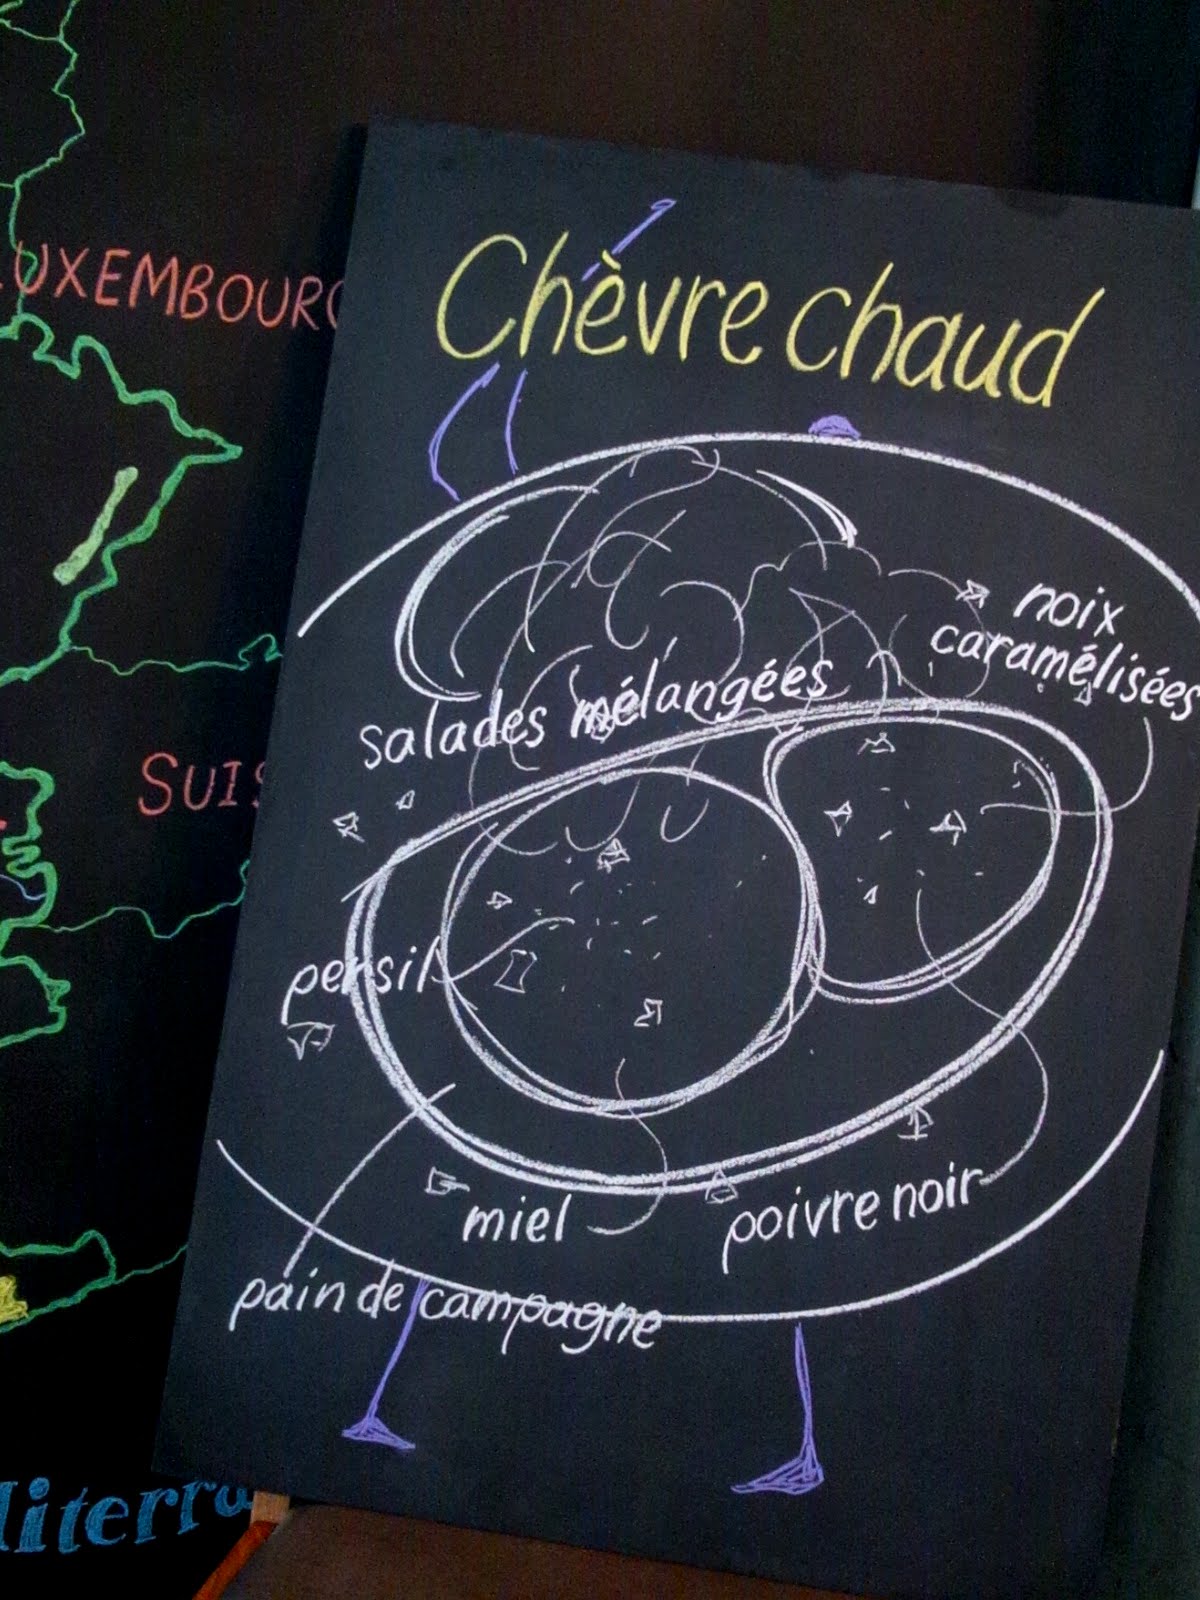 Chèvre chaud
noix
caramélisées
salades mélangées
persil
miel
poivre noir
pain de campagne
LUXEMBOURG
SUIS
diterra